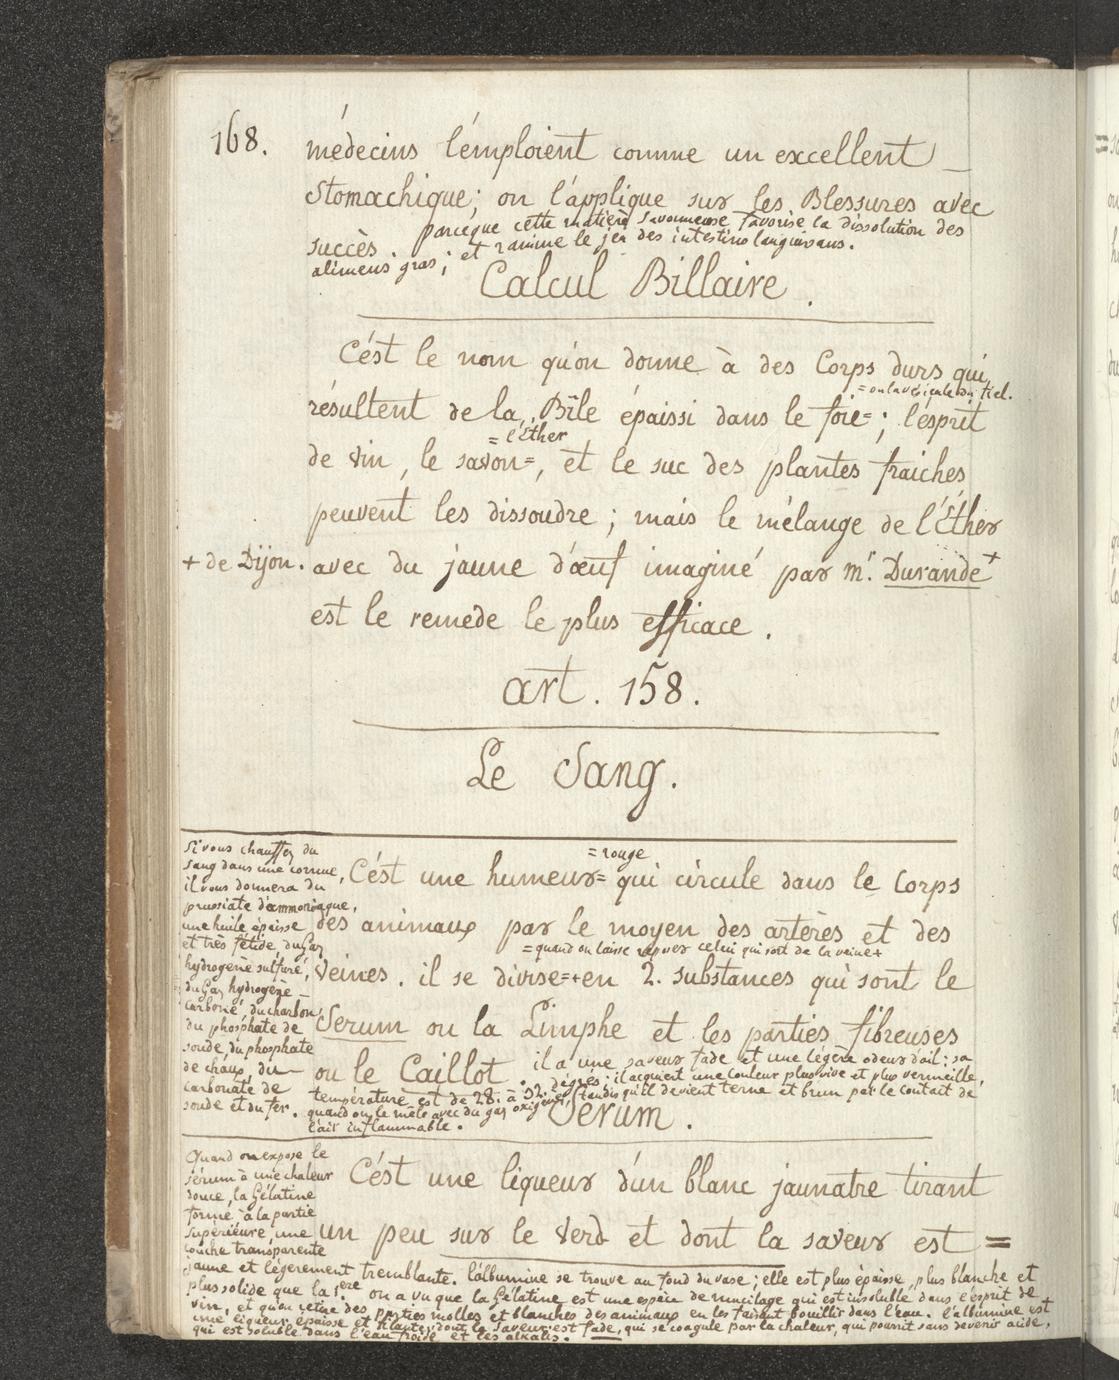 168.
médecins l'émploient comme un excellent
Stomachique; on l'applique sur les Blessures avec
succès. parceque cette matière savonneuse favorise la dissolution des
alimens gras; et ranime le jeu des intestins languissans.
Calcul Billaire.
C'ést le nom qu'on donne à des Corps durs qui
= ou la vésicule du fiel.
résultent de la Bîle épaissi dans le foie=; l'esprit
= l'Éther
de vin, le savon=, et le suc des plantes fraiches
peuvent les dissoudre; mais le mélange de l'Éther
+ de Dijon. avec du jaune d'œuf imaginé par mr. Durande+
est le remede le plus efficace.
art. 158.
Le Sang.
Si vous chauffez du
sang dans une cornue,
il vous donnera du
prussiate d'ammoniaque,
une huile épaisse
et très fétide du Gaz
hydrogène sulfuré,
du Gaz hydrogène
carboné, du charbon,
du phosphate de
soude, du phosphate
de chaux, du
carbonate de
soude et du fer.
= rouge
C'ést une humeur= qui circule dans le Corps
des animaux par le moyen des artères et des
= quand on laisse reposer celui qui sort de la veine+
Veines. il se divise=+en 2. substances qui sont le
Serum ou la Limphe et les parties fibreuses
ou le Caillot. il a une saveur fade et une légère odeur d'ail: sa
température est de 28. à 32. dégrés: il acquiert une couleur plus vive et plus vermeille,
quand on le mêle avec du gaz oxigène, tandis qu'il devient terne et brun par le contact de
l'air inflammable.
Serum.
Quand on expose le
sérum à une chaleur
douce, la Gélatine
forme à la partie
supérieure, une
couche transparente
C'ést une liqueur d'un blanc jaunatre tirant
un peu sur le Verd et dont la saveur est =
jaune et légèrement tremblante. l'albumine se trouve au fond du vase; elle est plus épaisse, plus blanche et
plus solide que la 1.ere on a vu que la Gélatine est une espèce de mucilage qui est insoluble dans l'esprit de
vin, et qu'on retire des parties molles et blanches des animaux en les faisant bouillir dans l'eau. l'albumine est
une liqueur épaisse et filante, dont la saveur est fade, qui se coagule par la chaleur, qui pourrit sans devenir acide,
qui est soluble dans l'eau froide et les alkalis.